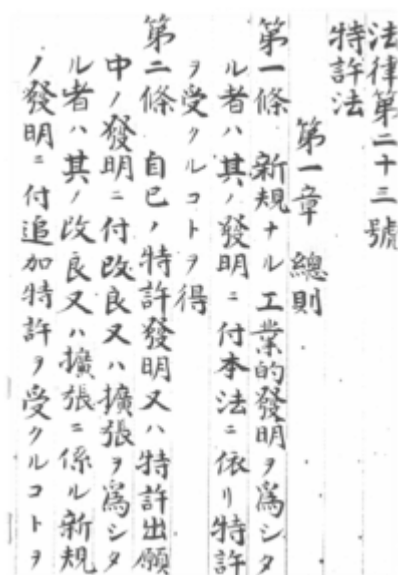 法律第二十三號
特許法
第一章 總則
第一條 新規ナル工業的發明ヲ爲シタ
ル者ハ其ノ發明ニ付本法ニ依リ特許
ヲ受クルコトヲ得
第二條 自己ノ特許發明又ハ特許出願
中ノ發明ニ付改良又ハ擴張ヲ爲シタ
ル者ハ其ノ改良又ハ擴張ニ係ル新規
ノ發明ニ付追加特許ヲ受クルコトヲ